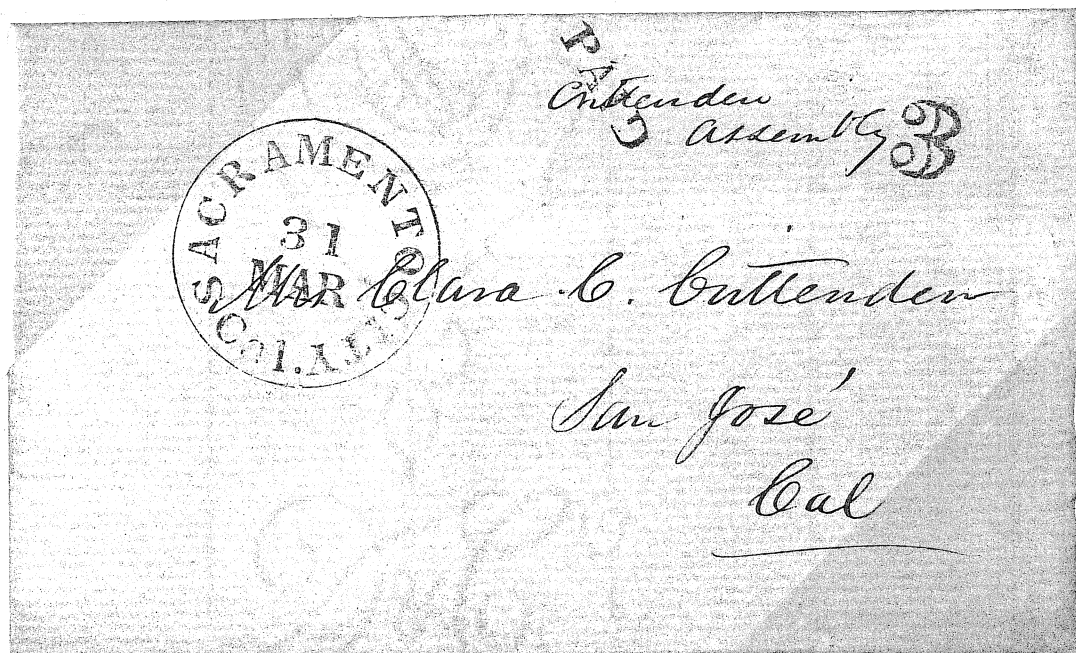 PAID
Crittenden
Assembly 3
SACRAMENTO CITY. Cal.
31
MAR
Mrs Clara C. Crittenden
San José
Cal